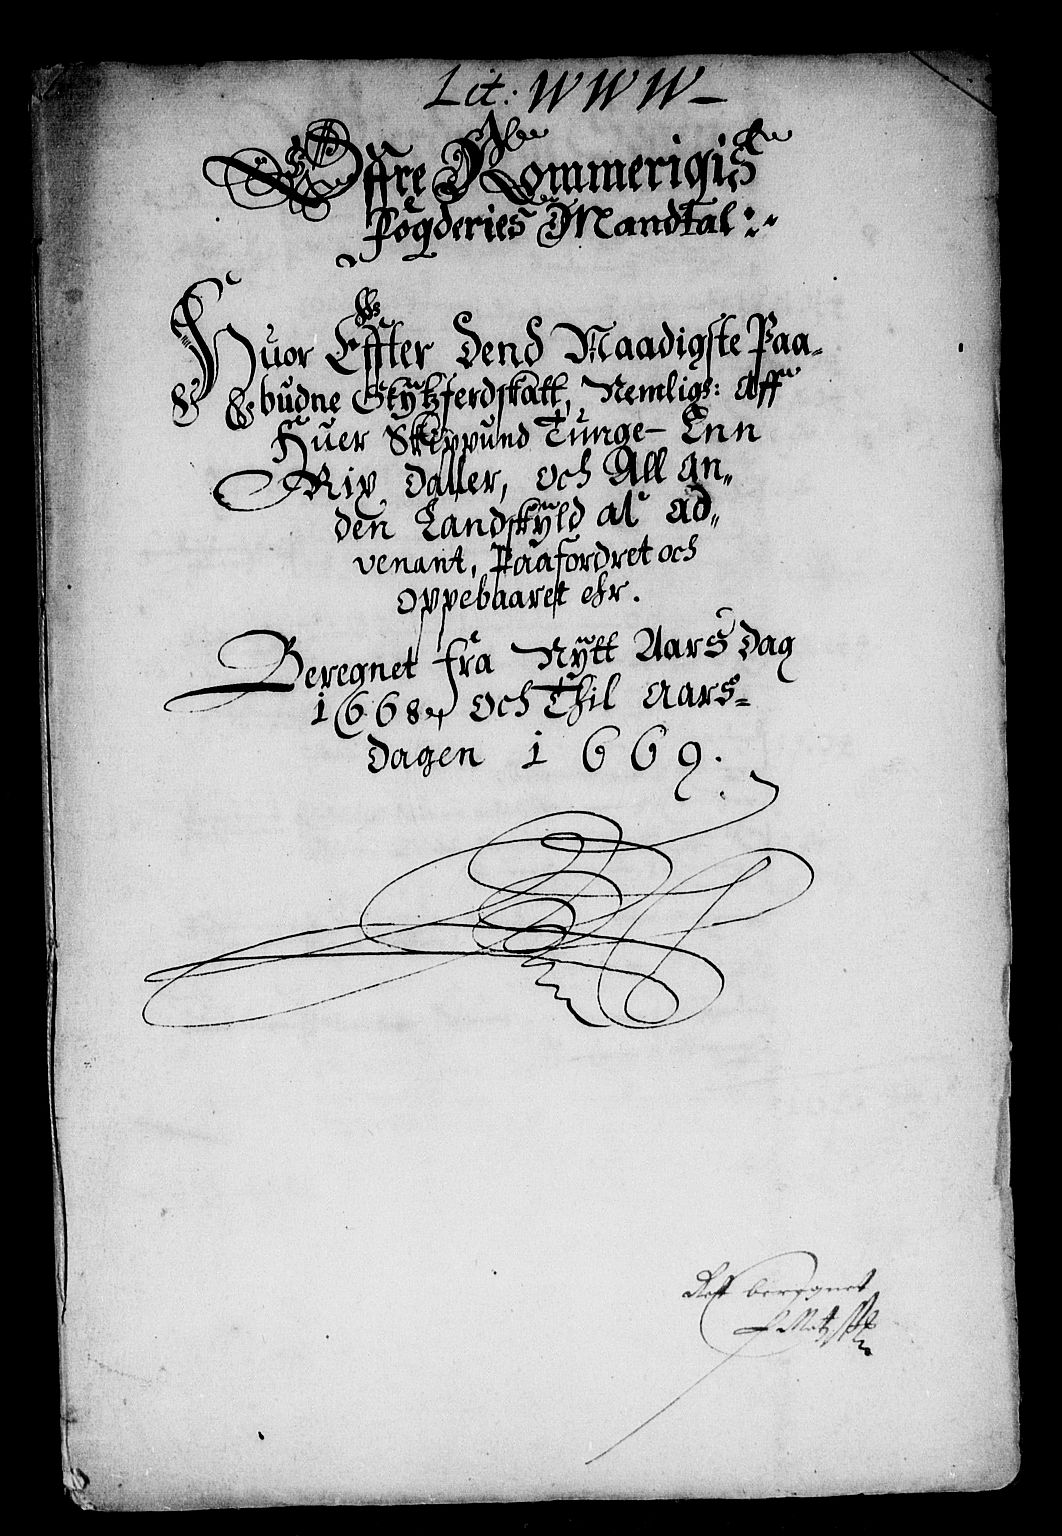 Lit: WWW
Öffre Rommerigis
Fogderies Mandtal
Huor Effter Dend Naadigste Paa-
budne Skytzferdskatt, Nemligs: Aff
Huer Skippund Tunge- Enn
Rix daller, och All an-
den Landskyld al ad-
venant, Paafordret och
oppebaaret ehr.
Beregnet fra Nytt Aars Dag
1668 och Thil Aars-
dagen 1669.
Rett beregnet